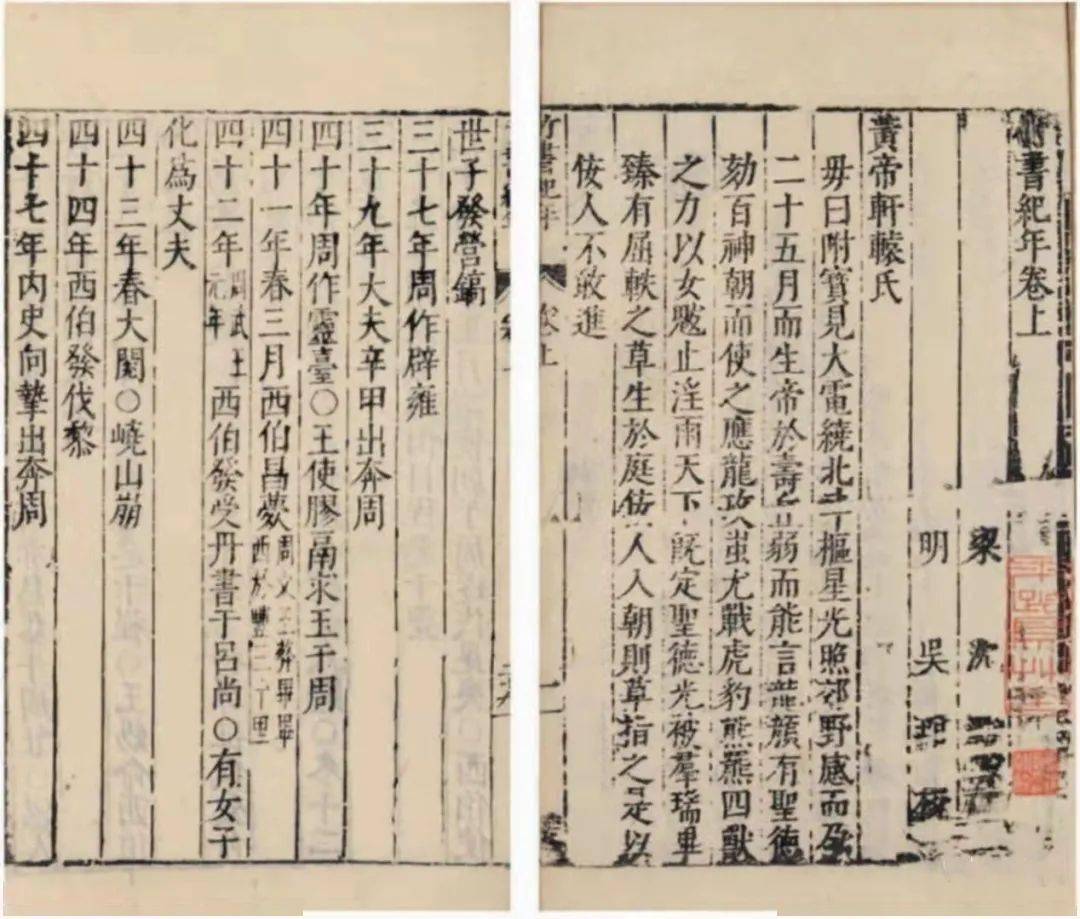 竹書紀年卷上
梁 沈
明 吳
黃帝軒轅氏
母曰附寶見大電繞北斗樞星光照郊野感而孕
二十五月而生帝於壽丘弱而能言龍顏有聖德
劾百神朝而使之應龍攻蚩尤戰虎豹熊羆四獸
之力以女魃止淫雨天下既定聖德光被羣瑞畢
臻有屈軼之草生於庭佞人入朝則草指之是以
佞人不敢進
竹書紀年 卷上 一
世子發營鎬
三十七年周作辟雍
三十九年大夫辛甲出奔周
四十年周作靈臺〇王使膠鬲求玉于周
四十一年春三月西伯昌薨周文王葬畢畢西於豐三十里
四十二年周武王元年西伯發受丹書于呂尚〇有女子
化為丈夫
四十三年春大閱〇嶢山崩
四十四年西伯發伐黎
四十七年內史向摯出奔周